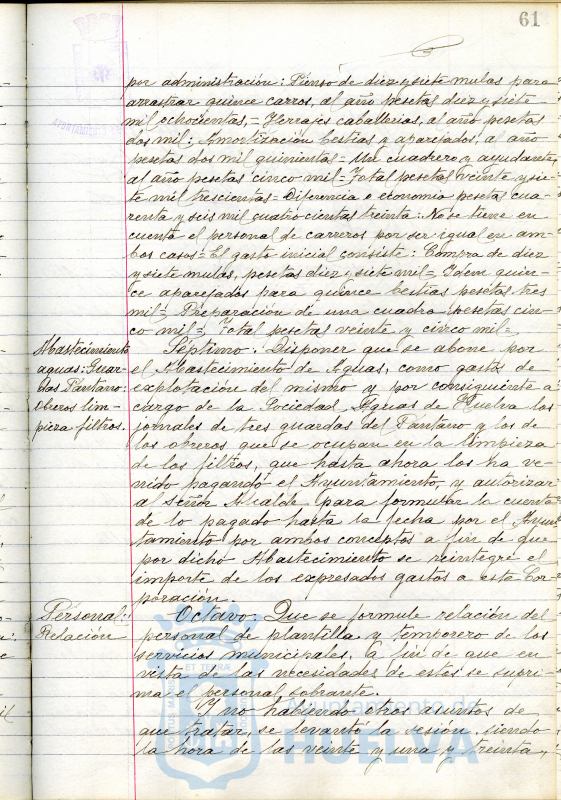 61
por administración: Pienso de diez y siete mulas para
arrastrar quince carros, al año pesetas diez y siete
mil ochocientas,= Herrajes caballerias, al año pesetas
dos mil: Amortización bestias y aparejados, al año
pesetas dos mil quinientas= Un cuadrero y ayudante,
al año pesetas cinco mil= Total pesetas veinte y sie-
te mil trescientas= Diferencia o economia pesetas cua-
renta y seis mil cuatrocientas treinta: No se tiene en
cuenta el personal de carreros por ser igual en am-
bos casos= El gasto inicial consiste: Compra de diez
y siete mulas, pesetas diez y siete mil= Idem quin-
ce aparejados para quince bestias pesetas tres
mil= Preparación de una cuadra pesetas cin-
co mil=, Total pesetas veinte y cinco mil=
Abastecimiento
aguas: Guar-
das Pantano:
Obreros lim-
pieza filtros.
Séptimo: Disponer que se abone por
el Abastecimiento de Aguas, como gastos de
explotación del mismo y por consiguiente a
cargo de la Sociedad Aguas de Huelva los
jornales de tres guardas del Pantano y los de
los obreros que se ocupan en la limpieza
de los filtros, que hasta ahora los ha ve-
nido pagando el Ayuntamiento, y autorizar
al señor Alcalde para formular la cuenta
de lo pagado hasta la fecha por el Ayun-
tamiento por ambos conceptos a fin de que
por dicho Abastecimiento se reintegre el
importe de los expresados gastos a esta Cor-
poración.
Personal:
Relación
Octavo: Que se formule relación del
personal de plantilla y temporero de los
servicios municipales, a fin de que en
vista de las necesidades de estos se supri-
ma el personal sobrante.
Y no habiendo otros asuntos de
que tratar, se levantó la sesión, siendo
la hora de las veinte y una y treinta,
Ayuntamiento de
HUELVA